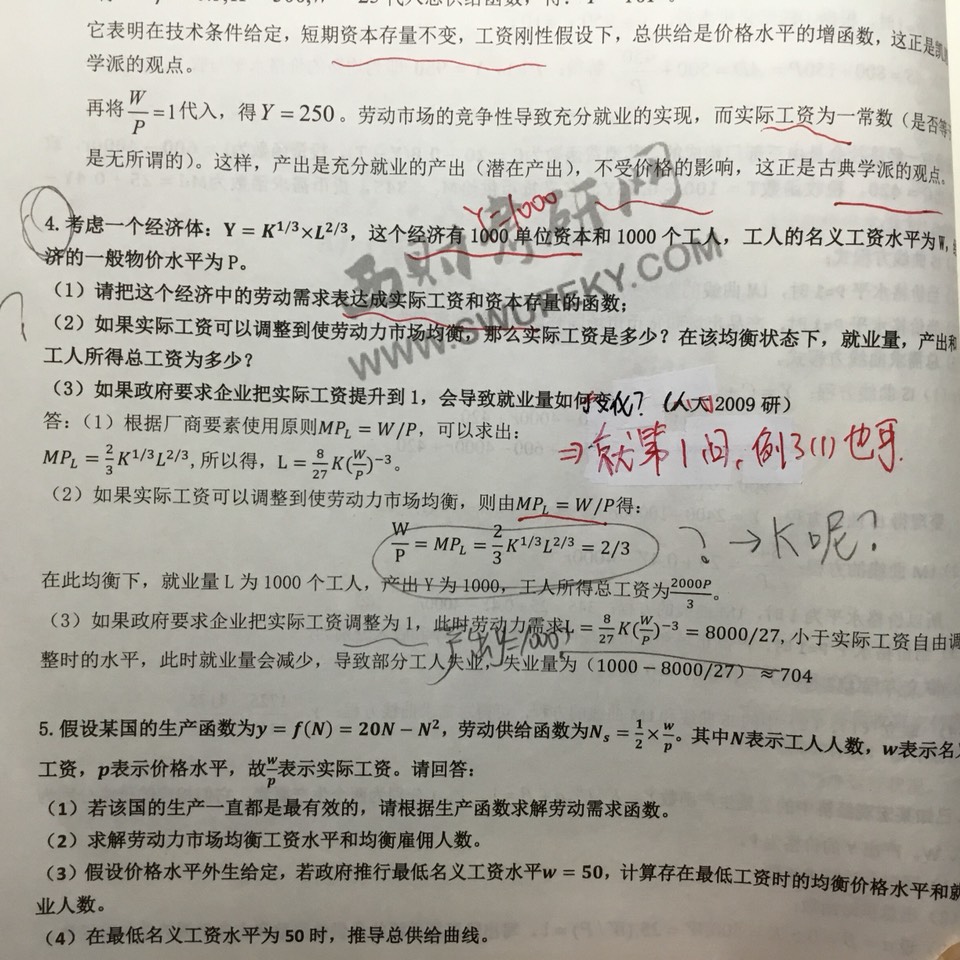 代入总供给函数，得：
它表明在技术条件给定，短期资本存量不变，工资刚性假设下，总供给是价格水平的增函数，这正是凯
学派的观点。
再将W/P=1代入，得Y = 250。劳动市场的竞争性导致充分就业的实现，而实际工资为一常数（是否等
是无所谓的）。这样，产出是充分就业的产出（潜在产出），不受价格的影响，这正是古典学派的观点。
Y=1000
4. 考虑一个经济体：Y = K^{1/3}×L^{2/3}，这个经济有 1000 单位资本和 1000 个工人，工人的名义工资水平为 W，
济的一般物价水平为 P。
（1）请把这个经济中的劳动需求表达成实际工资和资本存量的函数；
（2）如果实际工资可以调整到使劳动力市场均衡，那么实际工资是多少？在该均衡状态下，就业量，产出和
工人所得总工资为多少？
（3）如果政府要求企业把实际工资提升到 1，会导致就业量如何变化？（人大 2009 研）
答：（1）根据厂商要素使用原则MP_L = W/P，可以求出：
⇒就第1问，例3(1)也是.
MP_L = 2/3 K^{1/3}L^{2/3}, 所以得，L = 8/27 K(W/P)^{-3}。
（2）如果实际工资可以调整到使劳动力市场均衡，则由MP_L = W/P得：
W/P = MP_L = 2/3 K^{1/3}L^{2/3} = 2/3
? → K呢?
在此均衡下，就业量 L 为 1000 个工人，产出 Y 为 1000，工人所得总工资为2000P/3。
（3）如果政府要求企业把实际工资调整为 1，此时劳动力需求L = 8/27 K(W/P)^{-3} = 8000/27, 小于实际工资自由调
产出Y=1000?
整时的水平，此时就业量会减少，导致部分工人失业，失业量为（1000 − 8000/27）≈704
5. 假设某国的生产函数为y = f(N) = 20N − N²，劳动供给函数为N_s = 1/2 × w/p。其中N表示工人人数，w表示名
工资，p表示价格水平，故w/p表示实际工资。请回答：
（1）若该国的生产一直都是最有效的，请根据生产函数求解劳动需求函数。
（2）求解劳动力市场均衡工资水平和均衡雇佣人数。
（3）假设价格水平外生给定，若政府推行最低名义工资水平w = 50，计算存在最低工资时的均衡价格水平和就
业人数。
（4）在最低名义工资水平为 50 时，推导总供给曲线。
西财考研网
WWW.SWUFEKY.COM